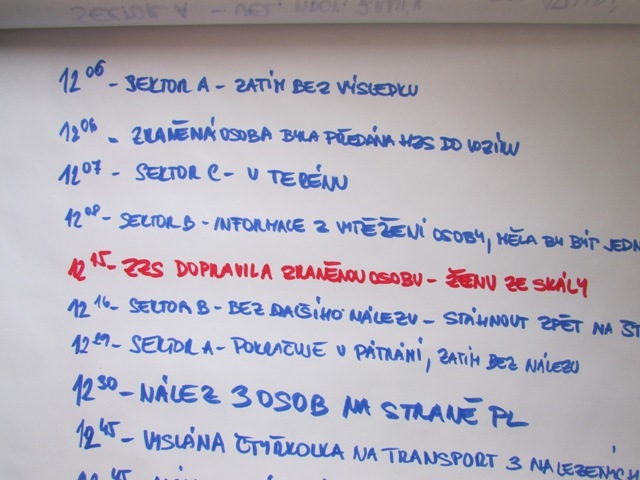 SEKTOR A -
12 06 - SEKTOR A - ZATÍM BEZ VÝSLEDKU
12 06 - ZRANĚNÁ OSOBA BYLA PŘEDÁNA HZS DO VOZÍKU
12 07 - SEKTOR C - V TERÉNU
12 08 - SEKTOR B - INFORMACE Z VYTĚŽENÍ OSOBY, MĚLA BY BÝT JEDN
12 15 - ZZS DOPRAVILA ZRANĚNOU OSOBU - ŽENU ZE SKÁLY
12 16 - SEKTOR B - BEZ DALŠÍHO NÁLEZU - STÁHNOUT ZPĚT NA ŠT
12 29 - SEKTOR A - POKRAČUJE V PÁTRÁNÍ, ZATÍM BEZ NÁLEZU
12 30 - NÁLEZ 3 OSOB NA STRANĚ PL
12 45 - VYSLÁNA ČTYŘKOLKA NA TRANSPORT 3 NALEZENÝCH